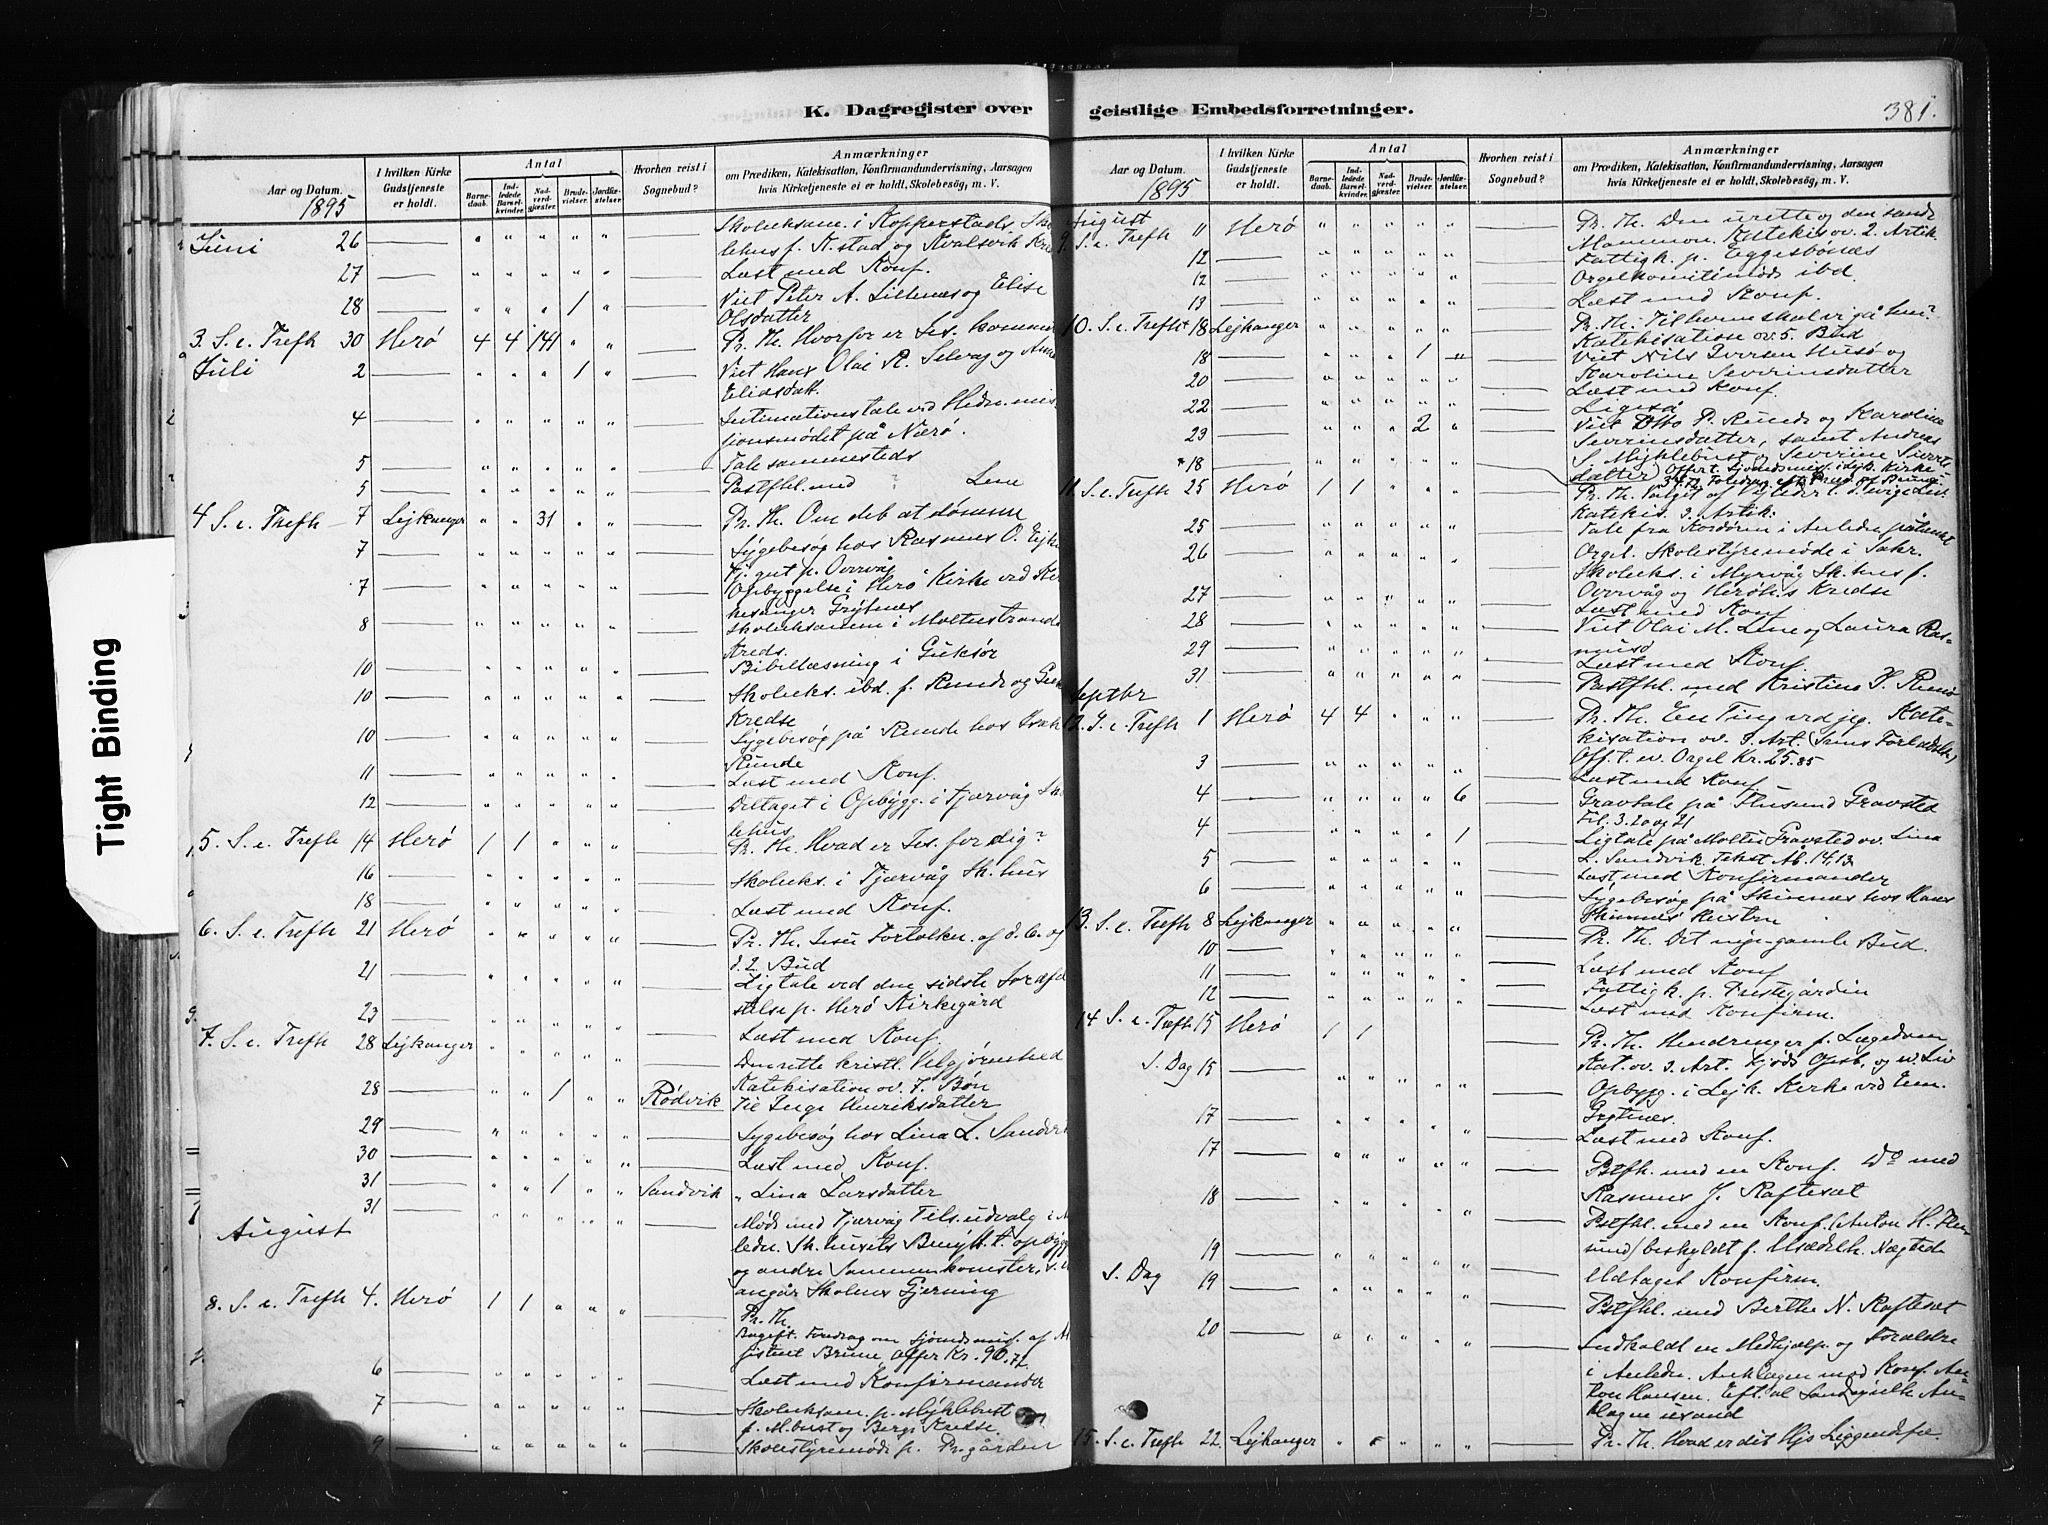 K. Dagregister over
Aar og Datum.
1895
I hvilken Kirke Gudstjeneste er holdt.
Antal
Barnedaab. Indledede Barselkvinder. Nadverdgjæster. Brudevielser. Jordfæstelser.
Hvorhen reist i Sognebud?
Anmærkninger
om Prædiken, Katekisation, Konfirmandundervisning, Aarsagen
hvis Kirketjeneste ei er holdt, Skolebesøg, m. V.
Juni 26 Skoleeksam. i Kopperstads
lehus f. K.stad og Kvalsvik
27 Læst med Konf.
28 1 Viet Peter A. Lillenæs og Elise
Olsdatter
3. S. e. Trefh 30 Herø 4 4 141 Pr. Th. Hvorfor er Jes. kommen
Juli 2 1 Viet Hans Olai R. Selvåg og Anne
Eliasdatt.
4 Intimationstale ved Hedn. mis-
sionsmødet på Nærø.
5 Tale sammesteds
5 Pastfhl. med ? Lene
4 S. e. Trefh 7 Lejkanger 31 Pr. Th. Om det at dømme
7 Sygebesøg hos Rasmus O. Ejk
Tj. gut p. Overvåg
7 Opbyggelse i Herø Kirke ved
Grytnes
8 Skoleeksamen i Moltustrands
Kreds.
10 Bibellæsning i Gurskør
10 Skoleeks. ibd. f. Runde og
Kredse
10 Sygebesøg på Runde hos
Runde
11 Læst med Konf.
12 Deltaget i Opbygg. i Tjørvåg Sk
lehus
5. S. e. Trefh 14 Herø 1 1 Pr. Th. Hvad er Jes. for dig?
16 Skoleeks. i Tjørvåg Sk. hus
18 Læst med Konf.
6. S. e. Trefh 21 Herø Pr. Th. Jesu Fortolkn. af d. 6. og
d. 2. Bud
21 Ligtale ved den sidste Jordfæ
stelse p. Herø Kirkegård
23 Læst med Konf.
7. S. e. Trefh 28 Lejkanger Den rette kristl. Velgjørenhed
Katekisation ov. 7. Bøn
28 1 Rødvik Til Inge Henriksdatter
29 Sygebesøg hos Lina L. Sandvik
30 Læst med Konf.
31 1 Sandvik " Lina Larsdatter
31 Møde med Tjørvåg Tils. udvalg i
ledn. Sk. husets Benytt. t. opbygg
og andre Sammenkomster,
angår Skolens Gjerning
August
8. S. e. Trefh 4. Herø 1 1 Pr. Th.
Foredrag om Sjømandsmis. af
Brun, Offer Kr. 90.72
6 Læst med Konfirmander
7 Skoleeksam. p. Myklebust
f. M.bust og Bergs Kredse.
9 Skolestyremøde p. Pr.gården
geistlige Embedsforretninger.
381.
Aar og Datum.
1895
I hvilken Kirke Gudstjeneste er holdt.
Antal
Barnedaab. Indledede Barselkvinder. Nadverdgjæster. Brudevielser. Jordfæstelser.
Hvorhen reist i Sognebud?
Anmærkninger
om Prædiken, Katekisation, Konfirmandundervisning, Aarsagen
hvis Kirketjeneste ei er holdt, Skolebesøg, m. V.
August
9. S. e. Trefh 11 Herø Pr. Th. Den urette og den sande
Mammon. Katekis ov. 2. Artik.
12 Fattigk. p. Eggesbønæs
12 Orgelkomitemøde ibd
13 Læst med Konf.
10. S. e. Trefh 18 Lejkanger Pr. Th. Til hvem skal vi gå hen?
Katekisation ov. 5. Bud
18 1 Viet Nils Iversen Husø og
Karoline Severinsdatter
20 Læst med Konf.
22 Ligeså
23 2 Viet Otto P. Runde og Karoline
Severinsdatter, samt Andreas
S. Myklebust og Severine Siverts-
datter
18 Offert. Sjømandsmis. i Lejk. Kirke
11. S. e. Trefh 25 Herø 1 1 Pr. Th. Valget af Vejleder t. d. evige Liv
Katekis. 3. Artik.
25 Tale fra Kordøren i Anledn. påtænkt
Orgel. Skolestyremøde i Sakr.
26 Skoleeks. i Myrvåg Sk. hus f.
Overvåg og Herøens Kredse
27 Læst med Konf.
28 Viet Olai M. Lene og Laura Ras-
musd
29 Læst med Konf.
31 Pastfhl. med Kristine P. Runde
Septbr
12. S. e. Trefh 1 Herø 4 4 Pr. Th. En Ting ved jeg. Kate-
kisation ov. 3. Art. (Syns Forladelse)
Off. t. ev. Orgel Kr. 25.85
3 Læst med Konf.
4 6 Gravtale på Flusund Gravsted
Fil. 3. 20 og 21
4 1 Ligtale på Moltu Gravsted ov. Lina
L. Sandvik. Tekst Åb. 14,13
5 Læst med Konfirmander
6 Sygebesøg på Skinnæs hos Hans
Skinnes' Hustru
13. S. e. Trefh 8 Lejkanger Pr. Th. Det nye-gamle Bud.
10 Læst med Konf
11 Fattigk. p. Prestegården
12 Læst med Konfirm.
14 S. e. Trefh 15 Herø 1 1 Pr. Th. Hindringer f. Lægedom
Kat. ov. 3. Art. Kjøds Opst. og ev. Liv
S. Dag 15 Opbygg. i Lejk. Kirke ved Em.
Grytnes.
17 Læst med Konf.
17 Pstfhl. med en Konf. Do med
Rasmus J. Kaftesæt
18 Pstfhl. med en Konf. (Anton H. Flu-
sund) beskyldt f. Usædelh. Nægted
19 Udtaget Konfirm.
S. Dag 19 Pstfhl. med Berthe N. Kaftesæt
20 Indkaldt en Medhjælp. og Forældre
i Anledn. Anklagen mod Konf. An-
ton Hansen. Eft. al Sandsynlh. An-
klagen usand
15. S. e. Trefh 22. Lejkanger Pr. Th. Hvad er det Hjs Liggendefæ.
Tight Binding